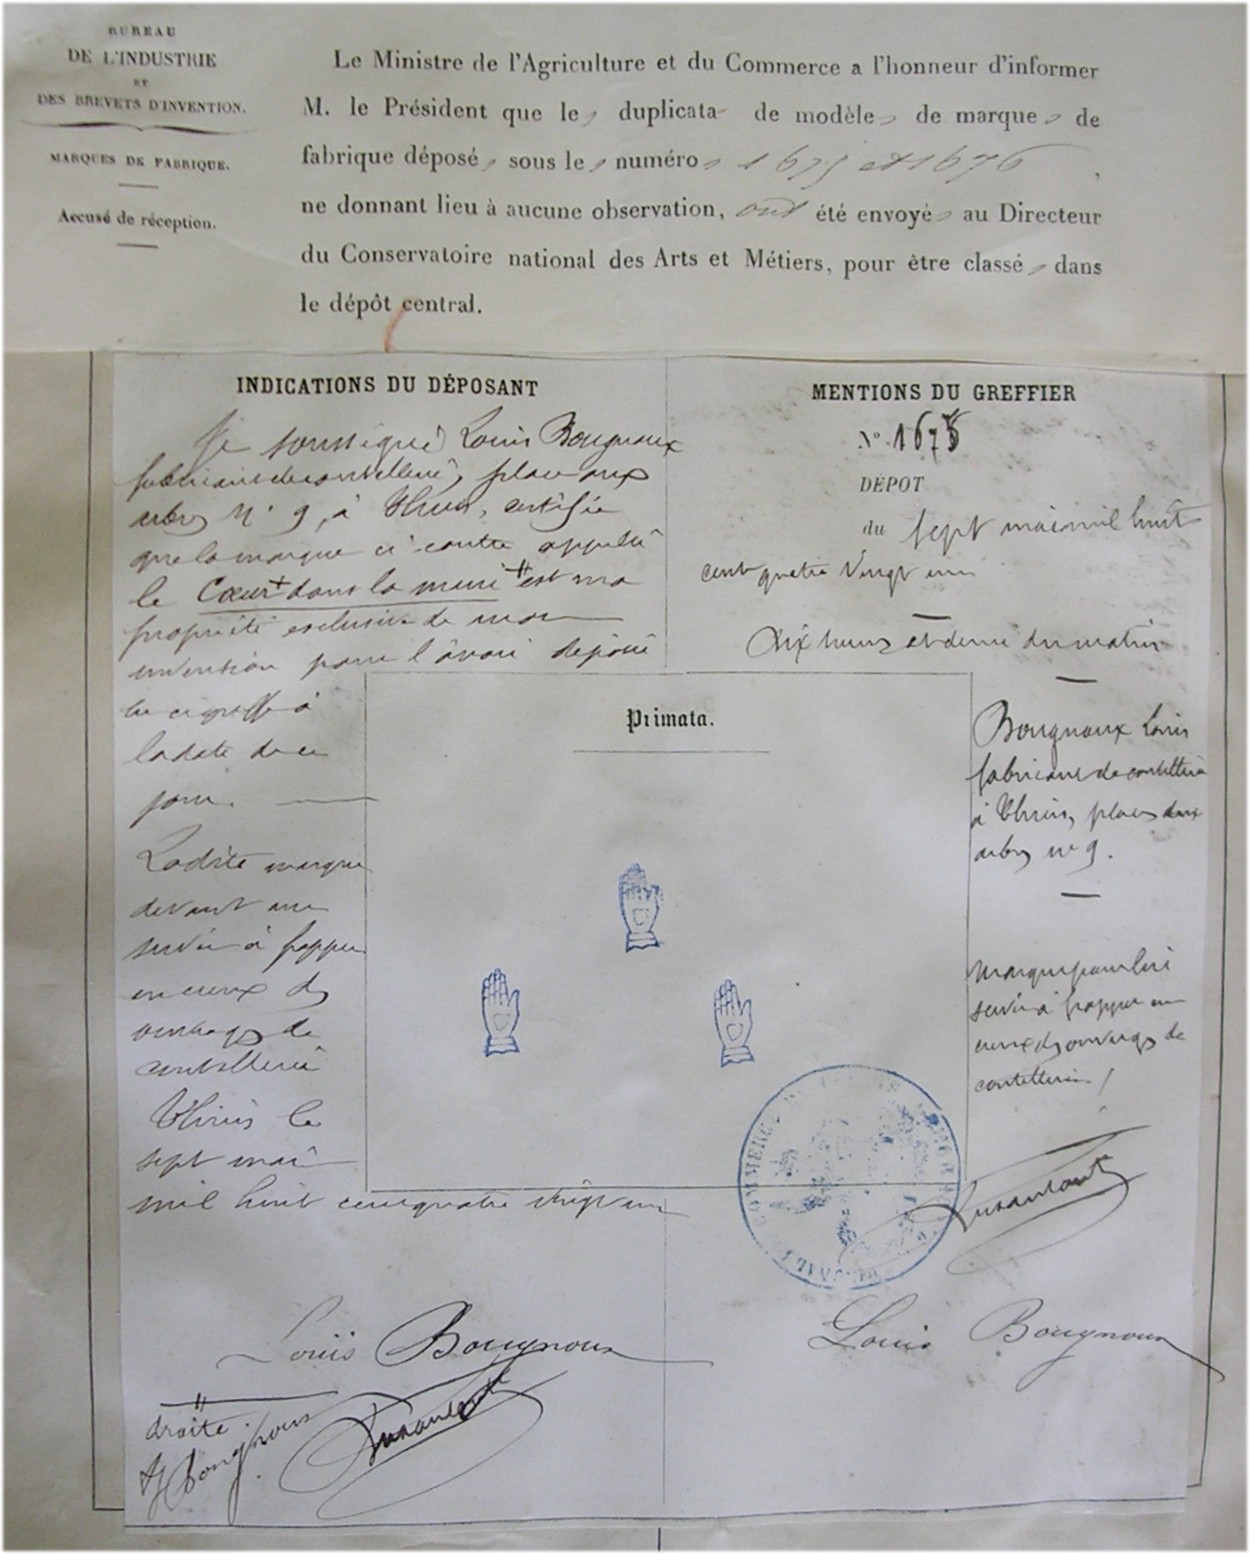 BUREAU
DE L'INDUSTRIE
ET
DES BREVETS D'INVENTION.
MARQUES DE FABRIQUE.
Accusé de réception.
Le Ministre de l'Agriculture et du Commerce a l'honneur d'informer
M. le Président que le duplicata de modèle de marque de
fabrique déposé sous le numéro 1675 et 1676,
ne donnant lieu à aucune observation, ont été envoyé au Directeur
du Conservatoire national des Arts et Métiers, pour être classé dans
le dépôt central.
INDICATIONS DU DÉPOSANT
Je soussigné Louis Bougnoux
fabricant de coutellerie, place aux
arbres N° 9, à Thiers, certifie
que la marque ci contre appelée
le Cœur + dans la main # est ma
propriété exclusive de mon
invention pour l'avoir déposé
au greffe à
la date de ce
jour.
Ladite marque
devant me
servir à frapper
en creux des
ouvrages de
coutellerie
Thiers le
sept mai
mil huit cent quatre vingt un
Louis Bougnoux
# droite
Bougnoux
MENTIONS DU GREFFIER
N°. 1675
DÉPOT
du sept mai mil huit
cent quatre vingt un
Dix heures et demie du matin
Primata.
Bougnoux Louis
fabricant de coutellerie
à Thiers, place aux
arbres n° 9.
Marque pour lui
servir à frapper en
creux des ouvrages de
coutellerie
COMMERCE
Louis Bougnoux